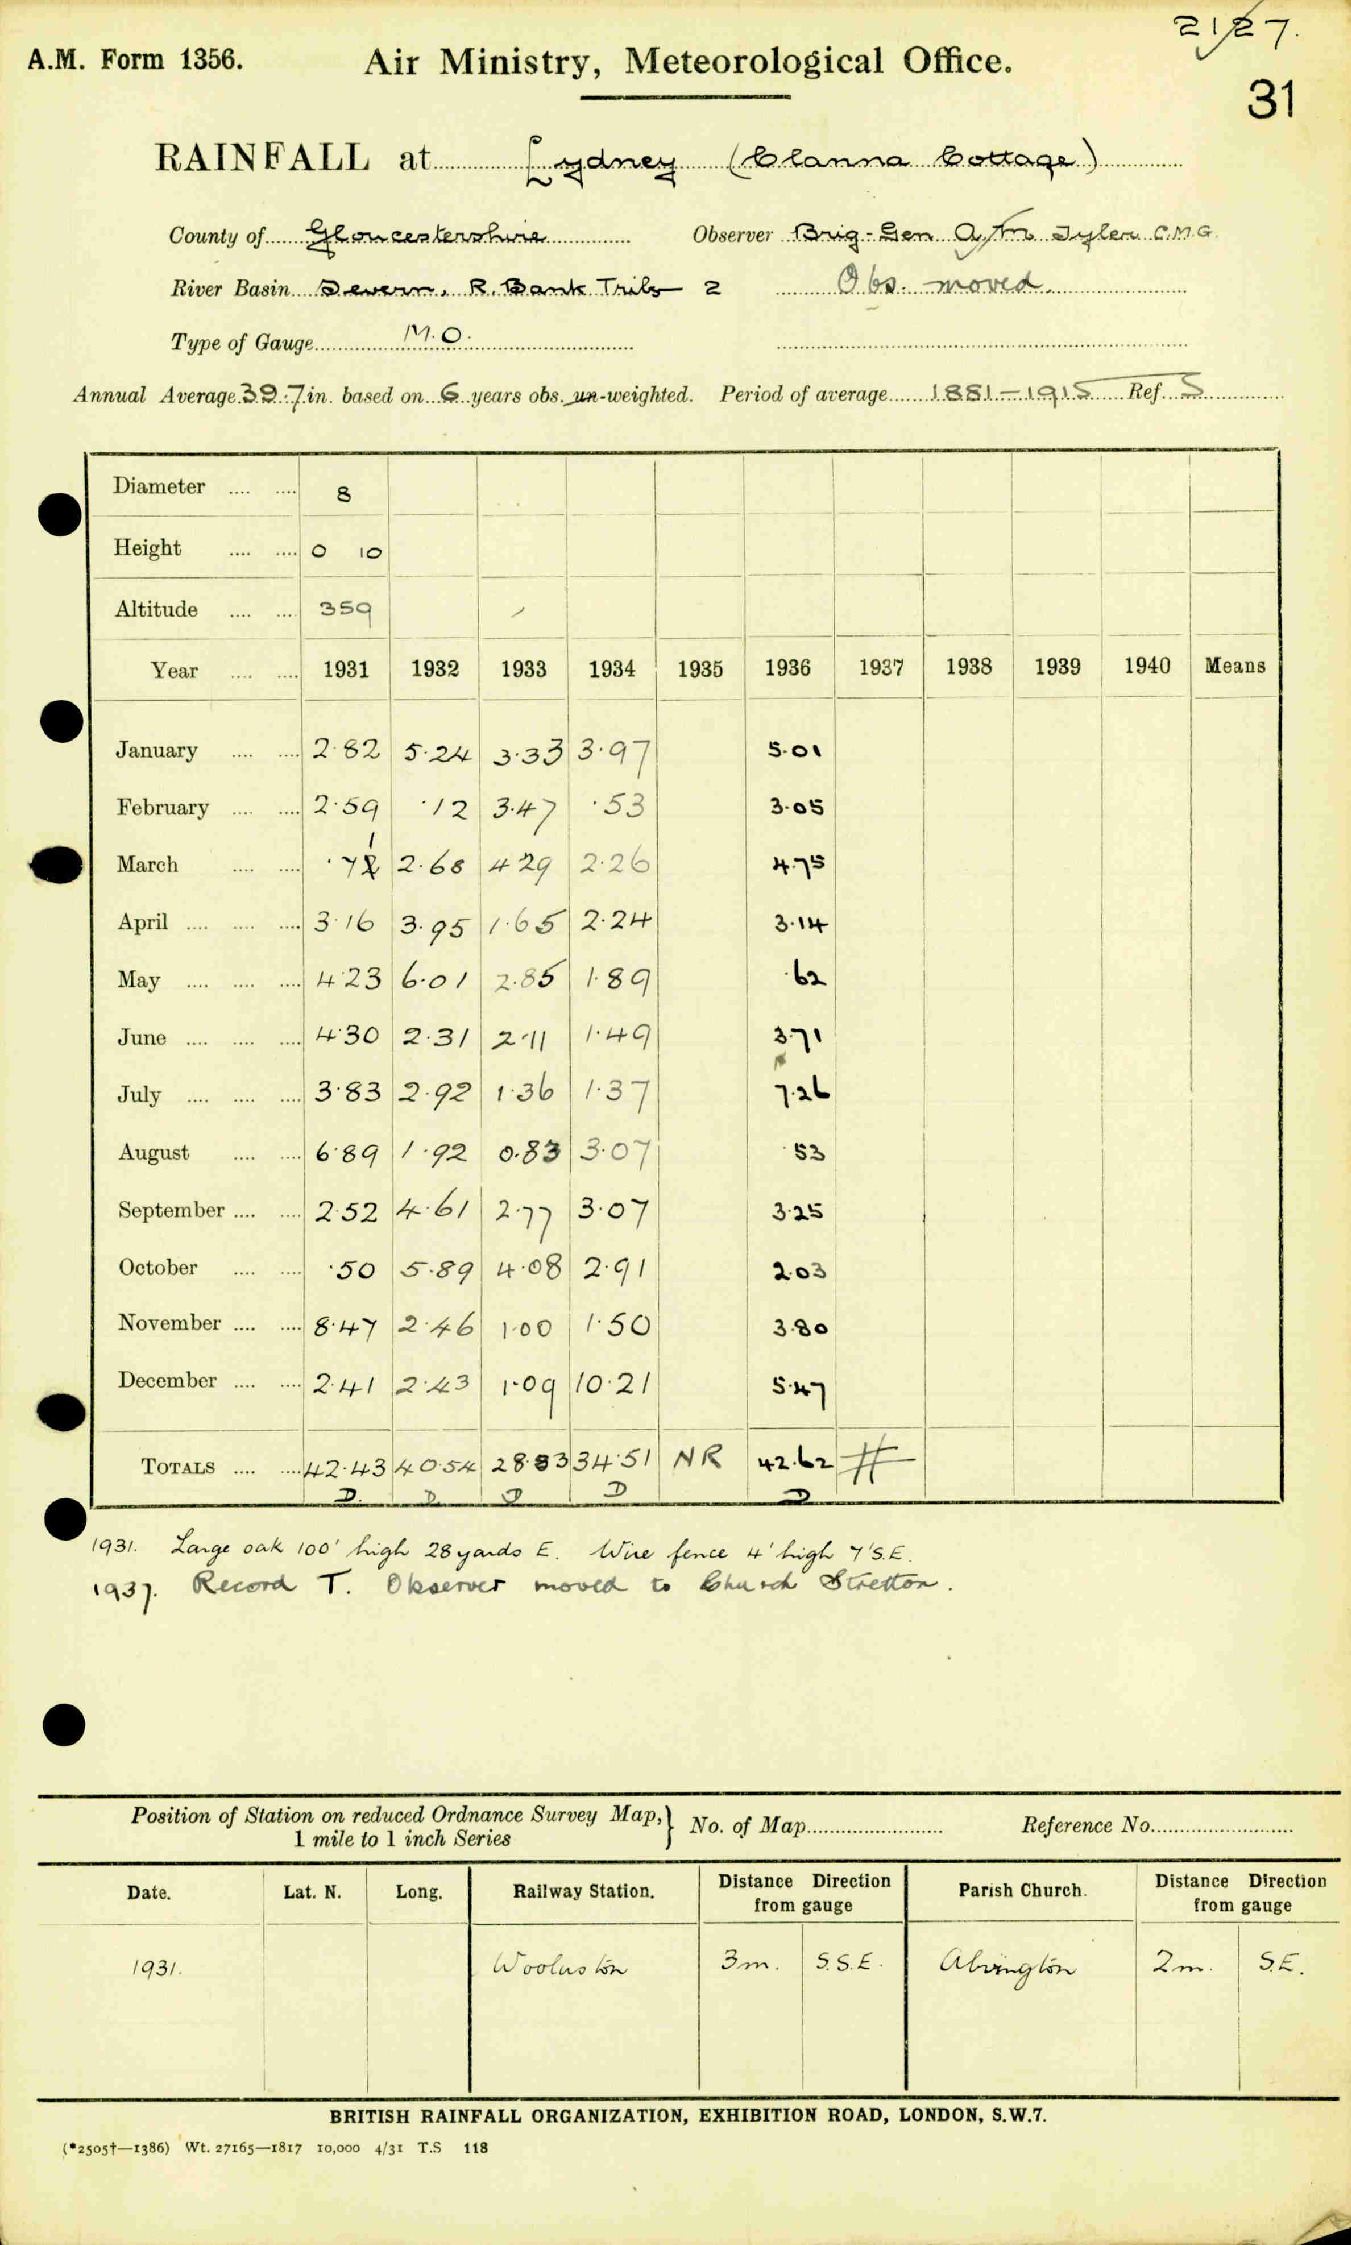 21/27.
A.M. Form 1356. Air Ministry, Meteorological Office.
31
RAINFALL at Lydney (Clanna Cottage)
County of Gloucestershire Observer Brig-Gen A/M Tyler C.M.G.
River Basin Severn, R. Bank Tribs 2 Obs. moved.
Type of Gauge M.O.
Annual Average 39.7 in. based on 6 years obs. un-weighted. Period of average 1881-1915 Ref. S
Diameter .... .... 8
Height .... .... 0 10
Altitude .... .... 359
Year .... .... 1931 1932 1933 1934 1935 1936 1937 1938 1939 1940 Means
January .... .... 2.82 5.24 3.33 3.97 5.01
February .... .... 2.59 .12 3.47 .53 3.05
March .... .... .71 2.68 4.29 2.26 4.75
April .... .... .... 3.16 3.95 1.65 2.24 3.14
May .... .... .... 4.23 6.01 2.85 1.89 .62
June .... .... .... 4.30 2.31 2.11 1.49 3.71
July .... .... .... 3.83 2.92 1.36 1.37 7.26
August .... .... 6.89 1.92 0.83 3.07 .53
September .... .... 2.52 4.61 2.77 3.07 3.25
October .... .... .50 5.89 4.08 2.91 2.03
November .... .... 8.47 2.46 1.00 1.50 3.80
December .... .... 2.41 2.43 1.09 10.21 5.47
TOTALS .... .... 42.43 40.54 28.83 34.51 NR 42.62 #
D. D. D D D
1931. Large oak 100' high 28 yards E. Wire fence 4' high 7' S.E.
1937. Record T. Observer moved to Church Stretton.
Position of Station on reduced Ordnance Survey Map, } No. of Map Reference No.
1 mile to 1 inch Series
Date. Lat. N. Long. Railway Station. Distance Direction from gauge Parish Church. Distance Direction from gauge
1931. Woolaston 3m. S.S.E. Alvington 2m. S.E.
BRITISH RAINFALL ORGANIZATION, EXHIBITION ROAD, LONDON, S.W.7.
(*2505†—1386) Wt. 27165—1817 10,000 4/31 T.S 118